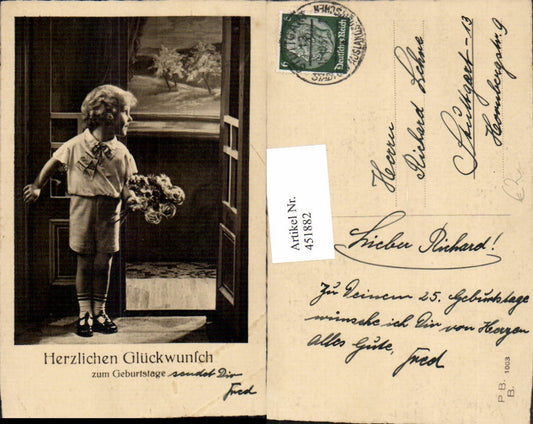 Herzlichen Glückwunsch
zum Geburtstage sendet Dir
Fred
Deutsches Reich
6
6
Herrn
Richard Lohre
Stuttgart-13
Artikel Nr.
451882
Lieber Richard!
Zu Deinem 25. Geburtstage
wünsche ich Dir von Herzen
Alles Gute,
Fred
P.B.
B. 1003